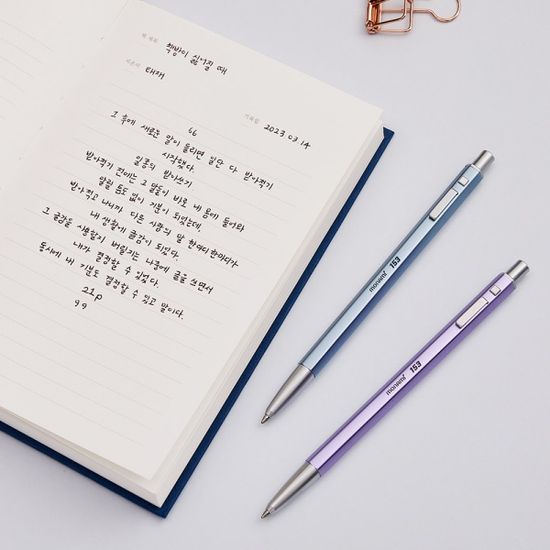 책 제목 책방이 싫어질 때
지은이 태재
기록일 2023.03.14
66
그 후에 새로운 말이 들리면 일단 다 받아적기
시작했다.
일종의 받아쓰기
받아적기 전에는 그 말들이 바로 내 몸에 들어와
알릴 틈도 없이 기분이 되었는데,
받아적고 나니까 다른 사람의 말 한마디 한마디가
내 생활에 글감이 되었다.
그 글감을 사용할지 버릴지는 나중에 글을 쓰면서
내가 결정할 수 있었다.
동시에 내 기분도 결정할 수 있고 말이다.
21p
99
monami 153
monami 153